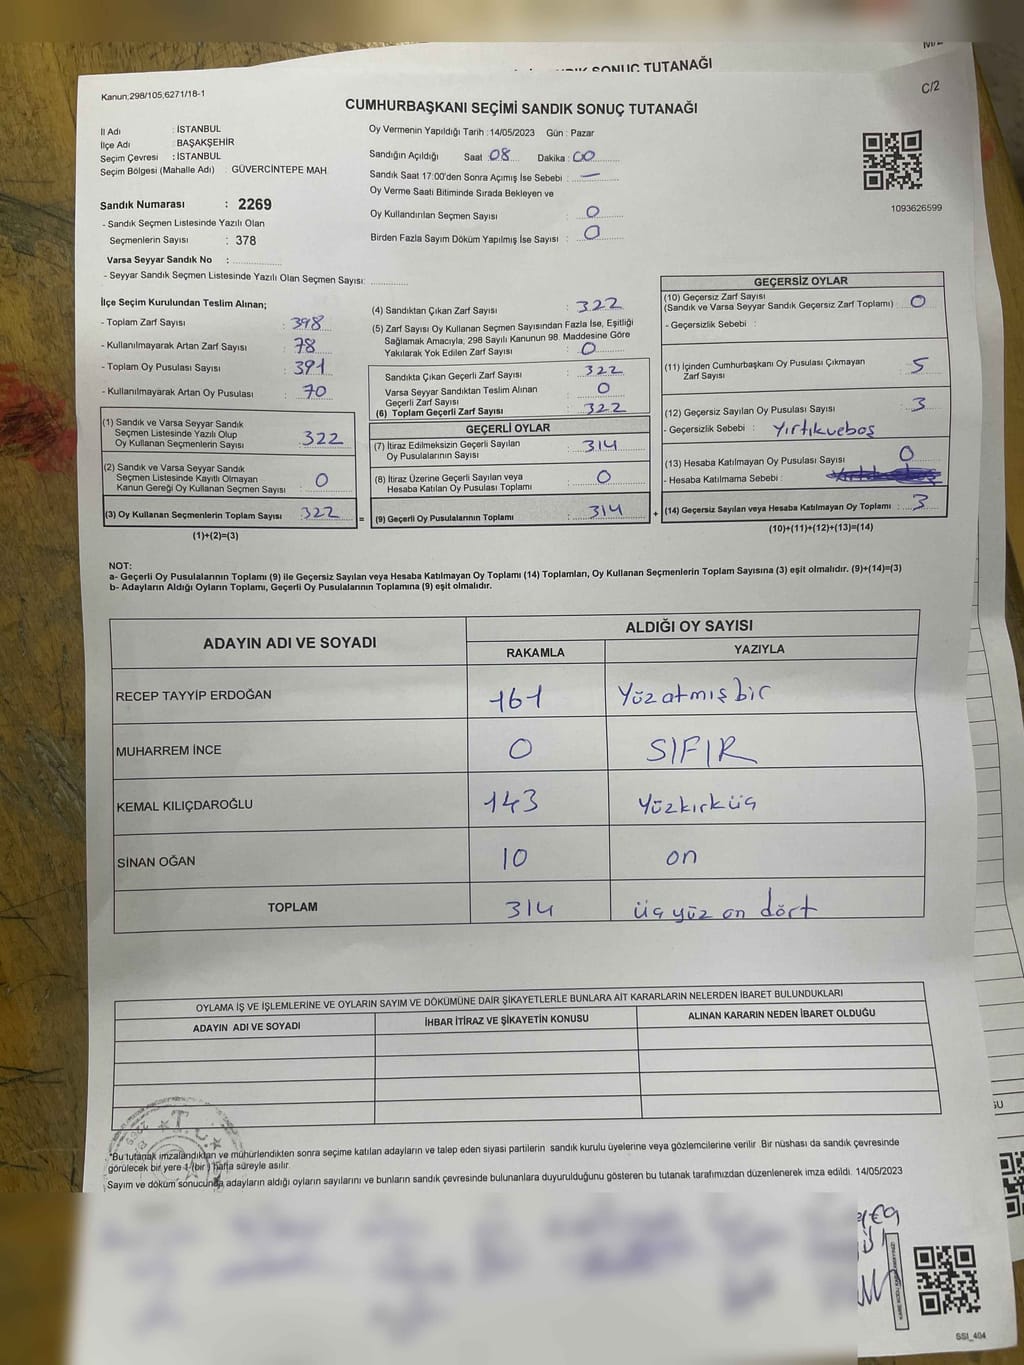 M/2
SONUÇ TUTANAĞI
C/2
Kanun;298/105,6271/18-1
CUMHURBAŞKANI SEÇİMİ SANDIK SONUÇ TUTANAĞI
İl Adı : İSTANBUL
İlçe Adı : BAŞAKŞEHİR
Seçim Çevresi : İSTANBUL
Seçim Bölgesi (Mahalle Adı) : GÜVERCİNTEPE MAH
Sandık Numarası : 2269
- Sandık Seçmen Listesinde Yazılı Olan
Seçmenlerin Sayısı : 378
Varsa Seyyar Sandık No :
- Seyyar Sandık Seçmen Listesinde Yazılı Olan Seçmen Sayısı:
Oy Vermenin Yapıldığı Tarih : 14/05/2023 Gün : Pazar
Sandığın Açıldığı Saat : 08 Dakika : 00
Sandık Saat 17:00'den Sonra Açımış İse Sebebi : —
Oy Verme Saati Bitiminde Sırada Bekleyen ve
Oy Kullandırılan Seçmen Sayısı : 0
Birden Fazla Sayım Döküm Yapılmış İse Sayısı : 0
1093626599
İlçe Seçim Kurulundan Teslim Alınan;
- Toplam Zarf Sayısı : 398
- Kullanılmayarak Artan Zarf Sayısı : 78
- Toplam Oy Pusulası Sayısı : 391
- Kullanılmayarak Artan Oy Pusulası : 70
(1) Sandık ve Varsa Seyyar Sandık
Seçmen Listesinde Yazılı Olup
Oy Kullanan Seçmenlerin Sayısı : 322
(2) Sandık ve Varsa Seyyar Sandık
Seçmen Listesinde Kayıtlı Olmayan
Kanun Gereği Oy Kullanan Seçmen Sayısı : 0
(3) Oy Kullanan Seçmenlerin Toplam Sayısı : 322
(1)+(2)=(3)
(4) Sandıktan Çıkan Zarf Sayısı : 322
(5) Zarf Sayısı Oy Kullanan Seçmen Sayısından Fazla İse, Eşitliği
Sağlamak Amacıyla, 298 Sayılı Kanunun 98. Maddesine Göre
Yakılarak Yok Edilen Zarf Sayısı : 0
Sandıkta Çıkan Geçerli Zarf Sayısı : 322
Varsa Seyyar Sandıktan Teslim Alınan
Geçerli Zarf Sayısı : 0
(6) Toplam Geçerli Zarf Sayısı : 322
GEÇERLİ OYLAR
(7) İtiraz Edilmeksizin Geçerli Sayılan
Oy Pusulalarının Sayısı : 314
(8) İtiraz Üzerine Geçerli Sayılan veya
Hesaba Katılan Oy Pusulası Toplamı : 0
= (9) Geçerli Oy Pusulalarının Toplamı : 314 +
GEÇERSİZ OYLAR
(10) Geçersiz Zarf Sayısı
(Sandık ve Varsa Seyyar Sandık Geçersiz Zarf Toplamı) : 0
- Geçersizlik Sebebi :
(11) İçinden Cumhurbaşkanı Oy Pusulası Çıkmayan
Zarf Sayısı : 5
(12) Geçersiz Sayılan Oy Pusulası Sayısı : 3
- Geçersizlik Sebebi : Yırtıkveboş
(13) Hesaba Katılmayan Oy Pusulası Sayısı : 0
- Hesaba Katılmama Sebebi :
(14) Geçersiz Sayılan veya Hesaba Katılmayan Oy Toplamı : 3
(10)+(11)+(12)+(13)=(14)
NOT:
a- Geçerli Oy Pusulalarının Toplamı (9) ile Geçersiz Sayılan veya Hesaba Katılmayan Oy Toplamı (14) Toplamları, Oy Kullanan Seçmenlerin Toplam Sayısına (3) eşit olmalıdır. (9)+(14)=(3)
b- Adayların Aldığı Oyların Toplamı, Geçerli Oy Pusulalarının Toplamına (9) eşit olmalıdır.
ADAYIN ADI VE SOYADI ALDIĞI OY SAYISI
RAKAMLA YAZIYLA
RECEP TAYYİP ERDOĞAN 161 Yüzatmışbir
MUHARREM İNCE 0 SIFIR
KEMAL KILIÇDAROĞLU 143 Yüzkırküç
SİNAN OĞAN 10 on
TOPLAM 314 üçyüz on dört
OYLAMA İŞ VE İŞLEMLERİNE VE OYLARIN SAYIM VE DÖKÜMÜNE DAİR ŞİKAYETLERLE BUNLARA AİT KARARLARIN NELERDEN İBARET BULUNDUKLARI
ADAYIN ADI VE SOYADI İHBAR İTİRAZ VE ŞİKAYETİN KONUSU ALINAN KARARIN NEDEN İBARET OLDUĞU
T.C.
*Bu tutanak imzalandıktan ve mühürlendikten sonra seçime katılan adayların ve talep eden siyasi partilerin sandık kurulu üyelerine veya gözlemcilerine verilir. Bir nüshası da sandık çevresinde
görülecek bir yere 1 (bir) hafta süreyle asılır.
Sayım ve döküm sonucunda adayların aldığı oyların sayılarını ve bunların sandık çevresinde bulunanlara duyurulduğunu gösteren bu tutanak tarafımızdan düzenlenerek imza edildi. 14/05/2023
SSI_404